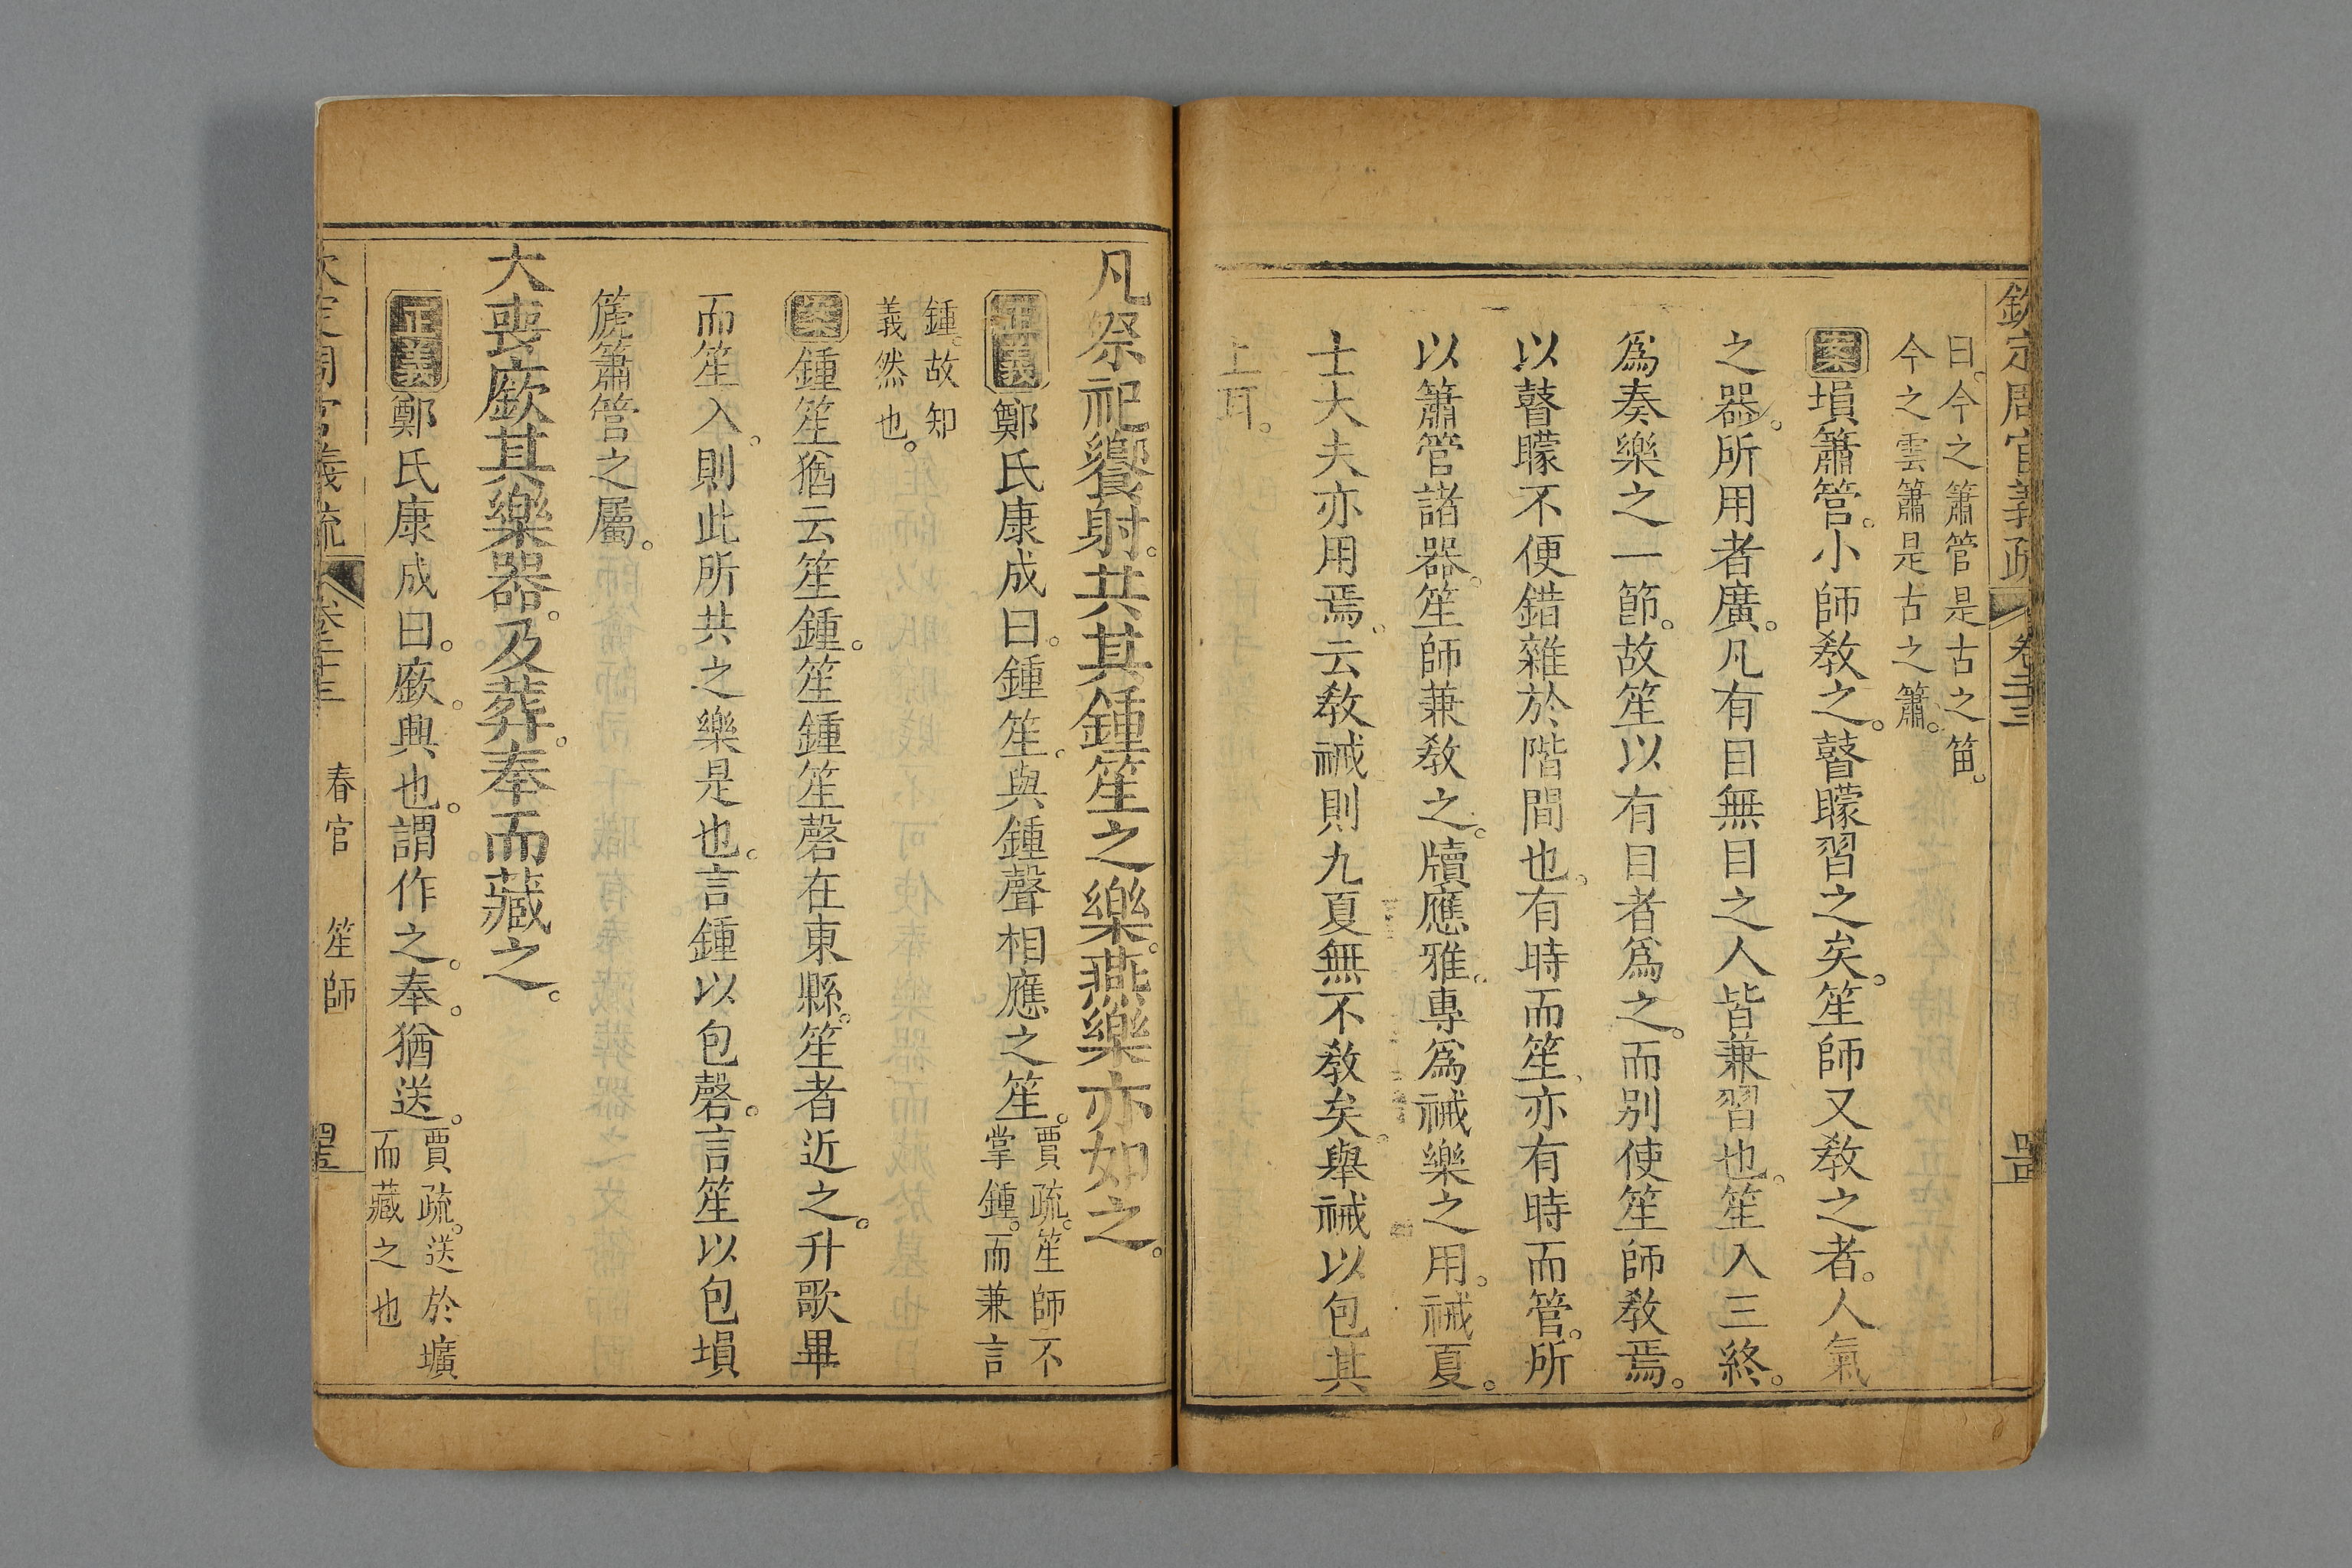 欽定周官義疏 卷二十三
曰。今之簫管是古之笛。
今之雲簫是古之簫。
案塤簫管。小師敎之。瞽矇習之矣。笙師又敎之者。人氣
之器。所用者廣。凡有目無目之人皆兼習也。笙入三終。
爲奏樂之一節。故笙以有目者爲之。而别使笙師敎焉。
以瞽矇不便錯雜於階間也。有時而笙、亦有時而管。所
以簫管諸器。笙師兼敎之。牘應雅。專爲祴樂之用。祴夏。
士大夫亦用焉。云敎祴則九夏無不敎矣。舉祴以包其
上耳。
凡祭祀饗射。共其鍾笙之樂。燕樂亦如之。
正義鄭氏康成曰。鍾笙。與鍾聲相應之笙。賈疏。笙師不
掌鍾。而兼言
鍾。故知
義然也。
案鍾笙猶云笙鍾。笙鍾笙磬在東縣。笙者近之。升歌畢
而笙入。則此所共之樂是也。言鍾以包磬。言笙以包塤
篪簫管之屬。
大喪廞其樂器。及葬。奉而藏之。
正義鄭氏康成曰。廞。興也。謂作之。奉。猶送。賈疏。送於壙
而藏之也
欽定周官義疏 卷二十三 春官 笙師